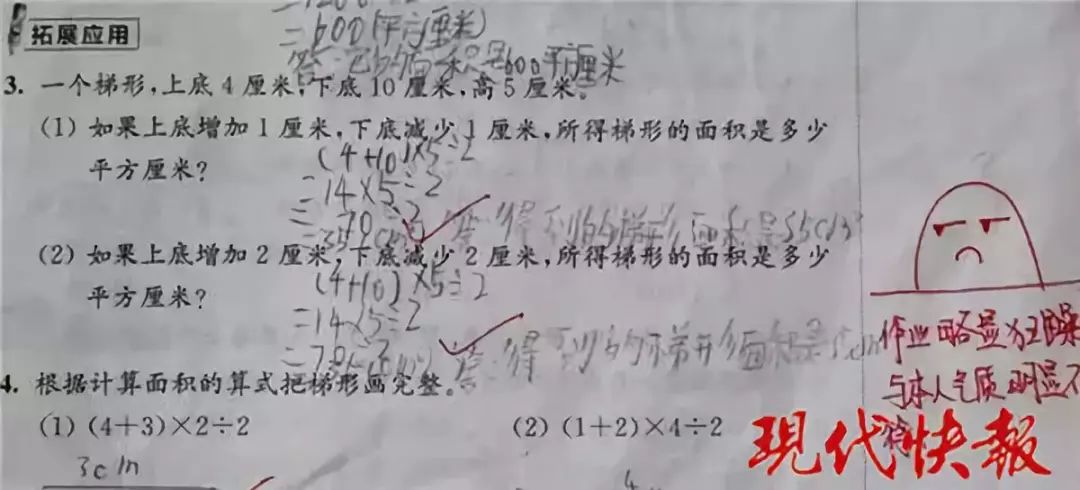 =600(平方厘米)
拓展应用
答:它的面积是600平方厘米
3. 一个梯形,上底4厘米,下底10厘米,高5厘米。
(1) 如果上底增加1厘米,下底减少1厘米,所得梯形的面积是多少
平方厘米?
(4+10)×5÷2
=14×5÷2
=70÷2
答:得到的梯形面积是35c
(2) 如果上底增加2厘米,下底减少2厘米,所得梯形的面积是多少
平方厘米?
(4+10)×5÷2
=14×5÷2
=70÷2
答:得到的梯形面积是
作业略显狂躁
与本人气质明显不
4. 根据计算面积的算式把梯形画完整。
(1) (4+3)×2÷2
(2) (1+2)×4÷2
现代快報
3cm
4